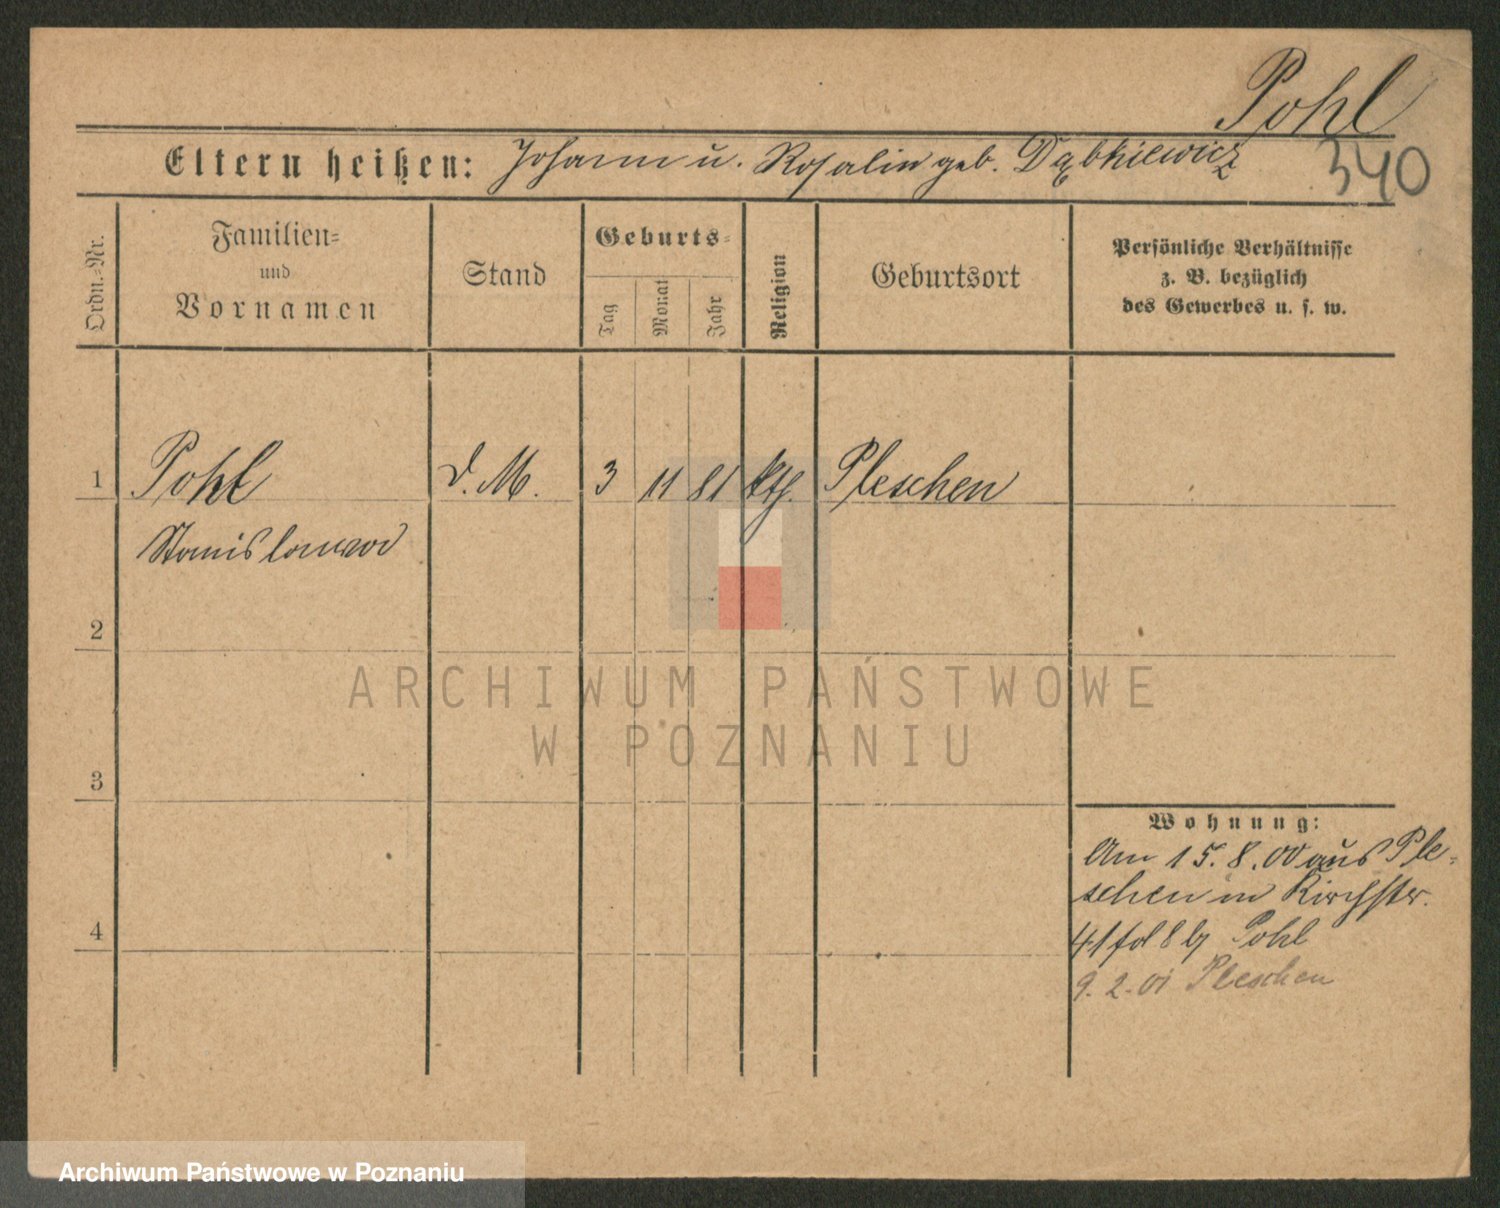 Pohl
340
Eltern heißen: Johann u. Rosalin geb. Dąbkiewicz
Ordn.-Nr.
Familien-
und
Vornamen
Stand
Geburts-
Tag
Monat
Jahr
Religion
Geburtsort
Persönliche Verhältnisse
z. B. bezüglich
des Gewerbes u. s. w.
1 Pohl d. M. 3 11 81 kth. Pleschen
Stanislawa
2
3
4
ARCHIWUM PAŃSTWOWE
W POZNANIU
Wohnung:
Am 15.8.00 aus Ple-
schen in Kirchstr.
41 fol 8 Pohl
9.2.01 Pleschen
Archiwum Państwowe w Poznaniu